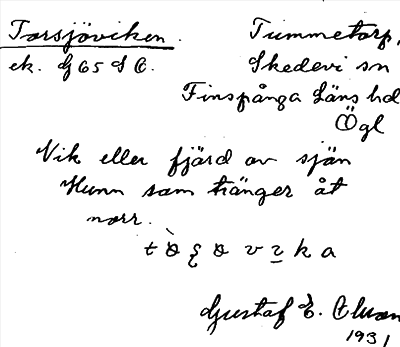 Torsjöviken. Tummetorp,
ek. G 65 S O. Skedevi sn
Finspånga Läns hd
Ögl
Vik eller fjärd av sjön
Hunn som tränger åt
norr.
Gustaf E. Olsson
1931